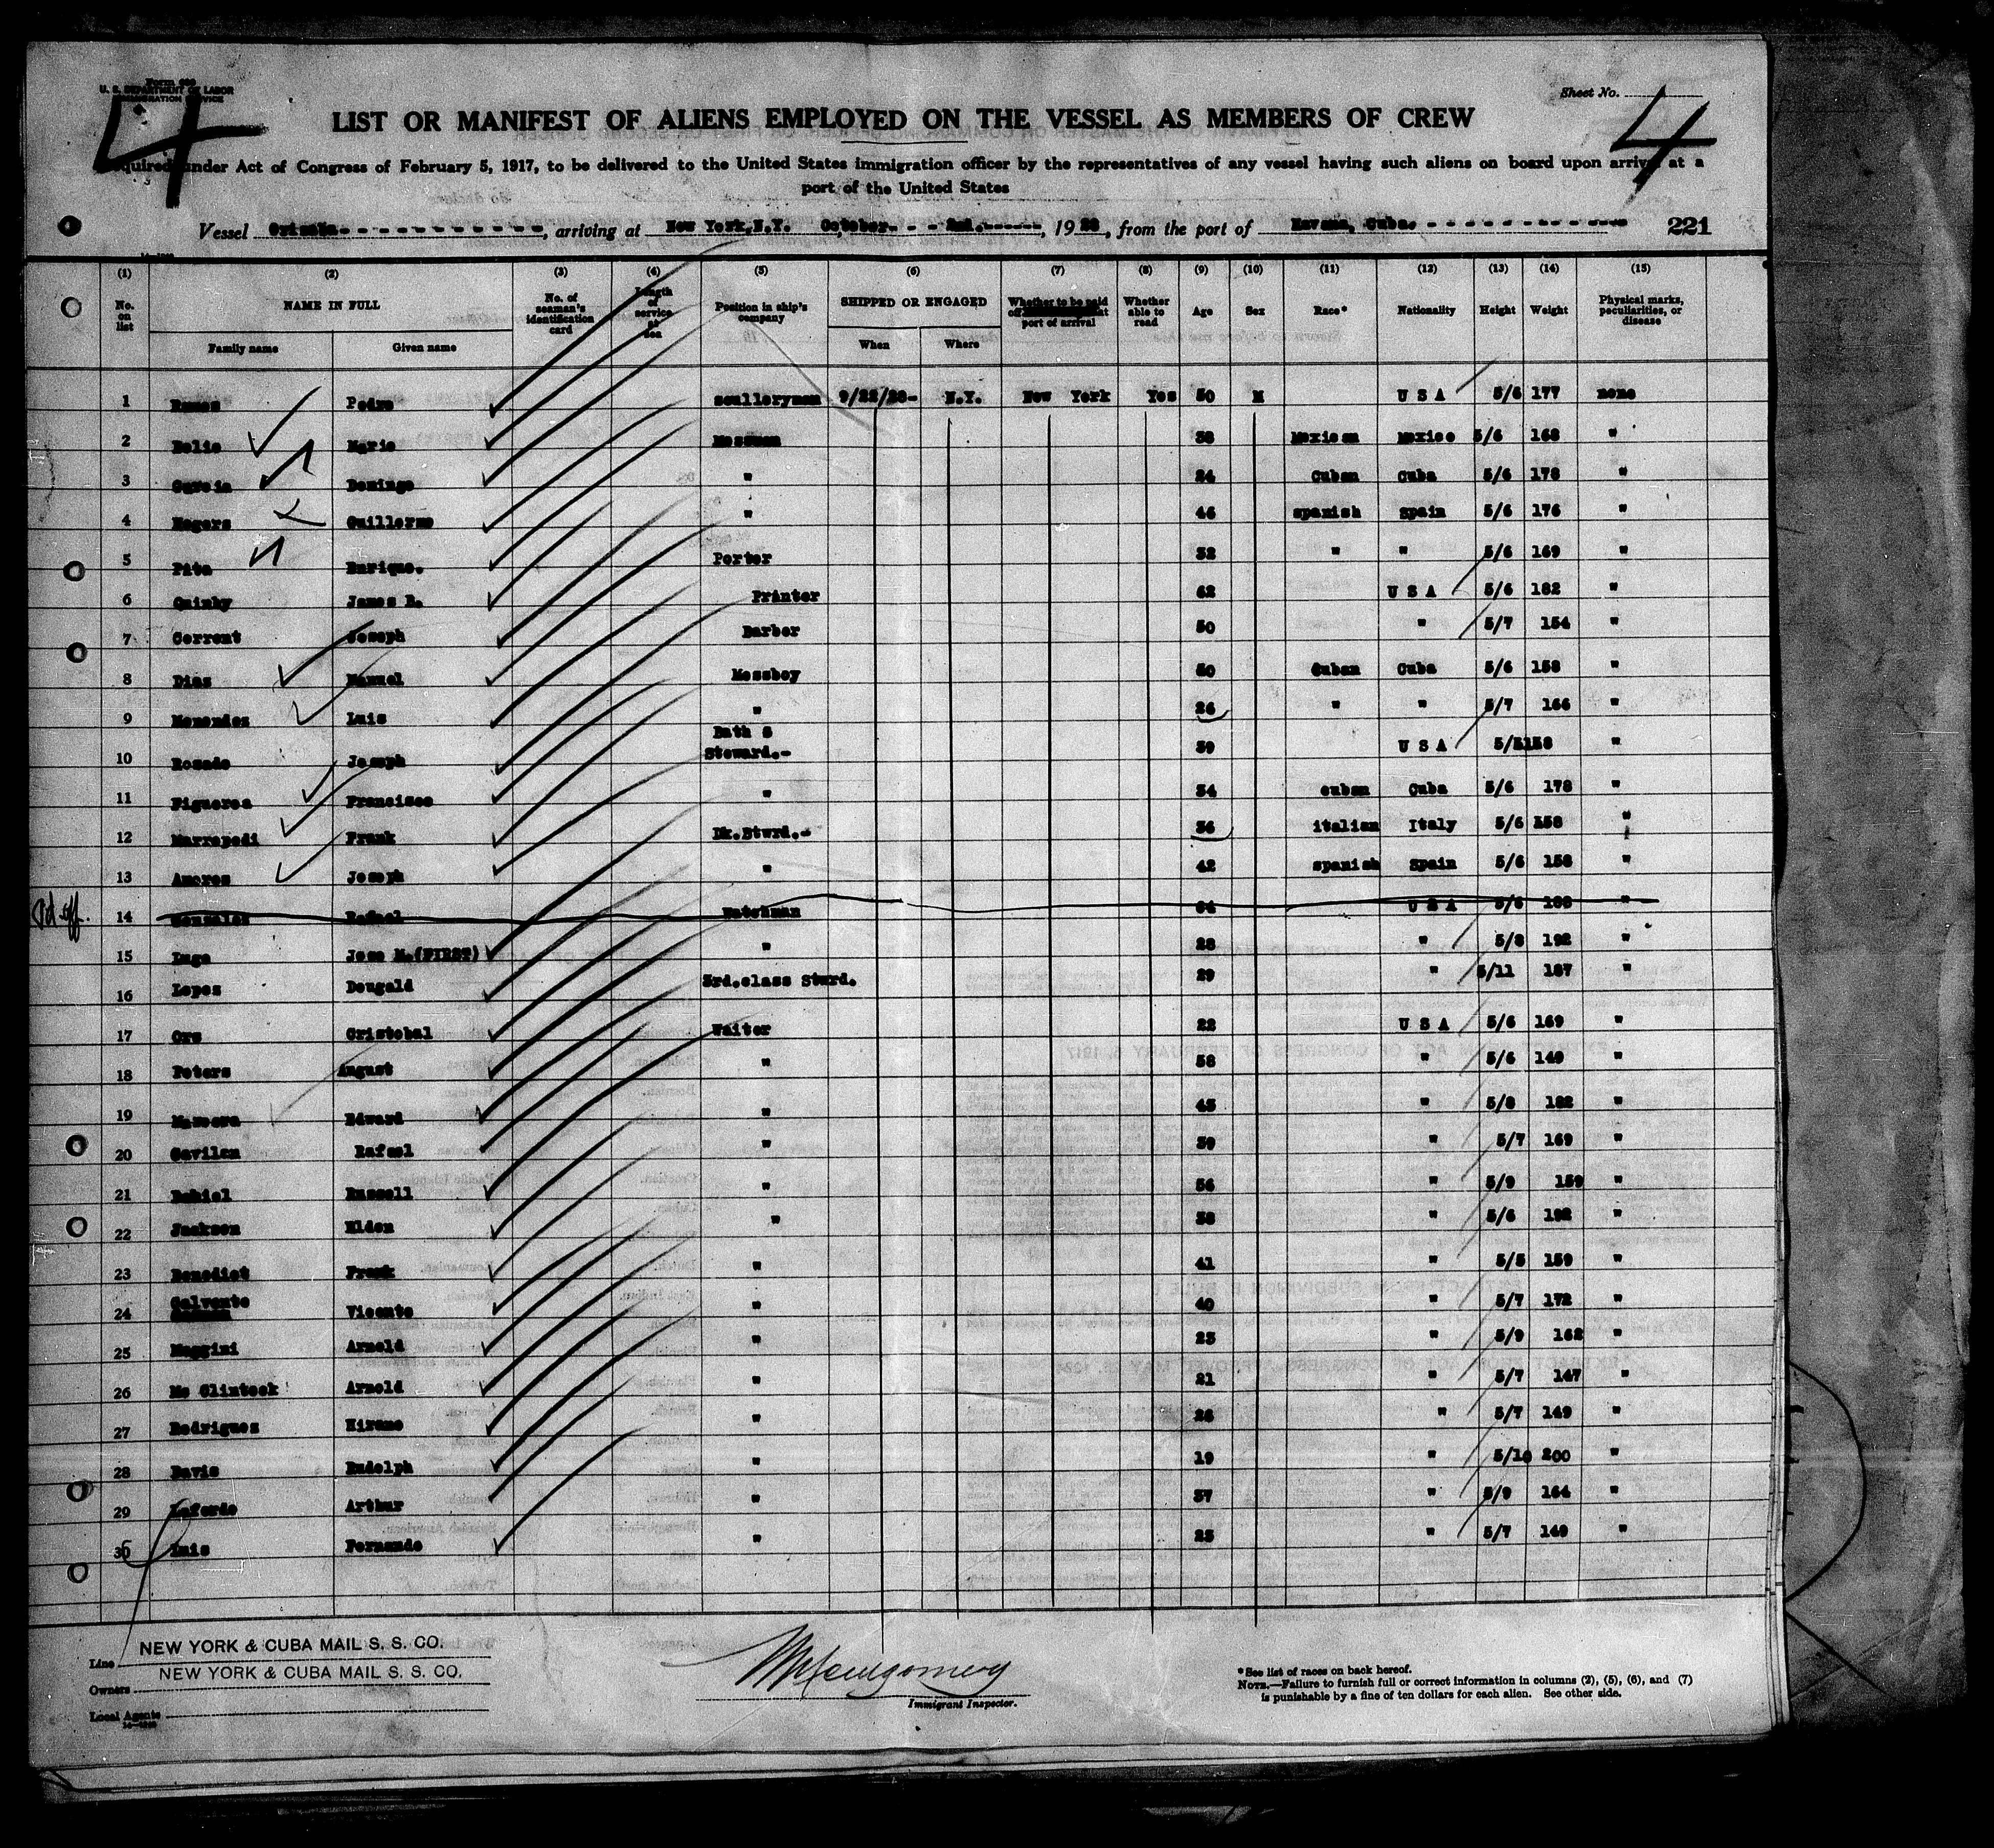 Form 680
U. S. DEPARTMENT OF LABOR
IMMIGRATION SERVICE
Sheet No. 4
4
LIST OR MANIFEST OF ALIENS EMPLOYED ON THE VESSEL AS MEMBERS OF CREW
Required under Act of Congress of February 5, 1917, to be delivered to the United States immigration officer by the representatives of any vessel having such aliens on board upon arrival at a
port of the United States
Vessel Orizaba, arriving at New York, N.Y. October 2nd, 1928, from the port of Havana, Cuba. 221
(1) (2) (3) (4) (5) (6) (7) (8) (9) (10) (11) (12) (13) (14) (15)
No. on list NAME IN FULL No. of seaman's identification card Length of service at sea Position in ship's company SHIPPED OR ENGAGED Whether to be paid off at port of arrival Whether able to read Age Sex Race* Nationality Height Weight Physical marks, peculiarities, or disease
Family name Given name When Where
1 Ramos Pedro sculleryman 9/22/28- N.Y. New York Yes 50 M U S A 5/6 177 none
2 Mario Messman 38 Mexican Mexico 5/6 168 "
3 Garcia Domingo " 24 Cuban Cuba 5/6 178 "
4 Guillermo " 46 spanish Spain 5/6 176 "
5 Pita Enrique. Porter 32 " " 5/6 169 "
6 Quinby James B. Printer 62 U S A 5/6 182 "
7 Corrent Joseph Barber 50 " 5/7 154 "
8 Dias Manuel Messboy 50 Cuban Cuba 5/6 158 "
9 Menendez Luis " 26 " " 5/7 166 "
10 Rosado Joseph Bath S Steward.- 39 U S A "
11 Figueroa Francisco " 34 cuban Cuba 5/6 178 "
12 Marrapodi Frank Dk.Stwrd.- 36 italian Italy 5/6 158 "
13 Amores Joseph " 42 spanish Spain 5/6 158 "
Pd off. 14 Gonzalez Rafael Watchman U S A 5/6 "
15 Luga Jose M.(FIRST) " 28 " 5/8 192 "
16 Lopez Dougald 3rd.class Stwrd. 29 " 5/11 187 "
17 Ors Cristobal Waiter 22 U S A 5/6 169 "
18 Peters August " 58 " 5/6 149 "
19 Edward " 45 " 5/8 182 "
20 Gavilan Rafael " 39 " 5/7 169 "
21 Russell " 56 " 5/9 159 "
22 Jackson Elden " 38 " 5/6 192 "
23 Benedict Frank " 41 " 5/5 159 "
24 Calvente Vicente " 40 " 5/7 172 "
25 Maggini Arnold " 23 " 5/9 162 "
26 Mc Clintock Arnold " 21 " 5/7 147 "
27 Rodriguez Hiramo " 26 " 5/7 149 "
28 Davis Rudolph " 19 " 5/10 200 "
29 Laforde Arthur " 37 " 5/9 164 "
30 Luis Fernando " 23 " 5/7 149 "
Line NEW YORK & CUBA MAIL S. S. CO.
Owners NEW YORK & CUBA MAIL S. S. CO.
Local Agents
Montgomery
Immigrant Inspector.
*See list of races on back hereof.
NOTE.—Failure to furnish full or correct information in columns (2), (5), (6), and (7)
is punishable by a fine of ten dollars for each alien. See other side.